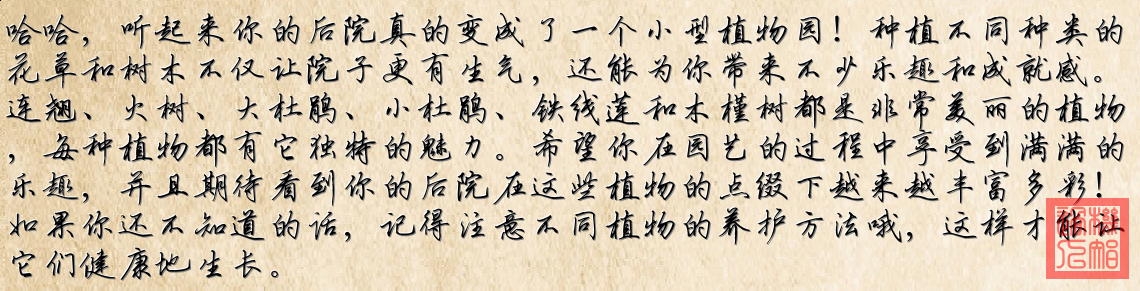 哈哈，听起来你的后院真的变成了一个小型植物园！种植不同种类的
花草和树木不仅让院子更有生气，还能为你带来不少乐趣和成就感。
连翘、火树、大杜鹃、小杜鹃、铁线莲和木槿树都是非常美丽的植物
，每种植物都有它独特的魅力。希望你在园艺的过程中享受到满满的
乐趣，并且期待看到你的后院在这些植物的点缀下越来越丰富多彩！
如果你还不知道的话，记得注意不同植物的养护方法哦，这样才能让
它们健康地生长。